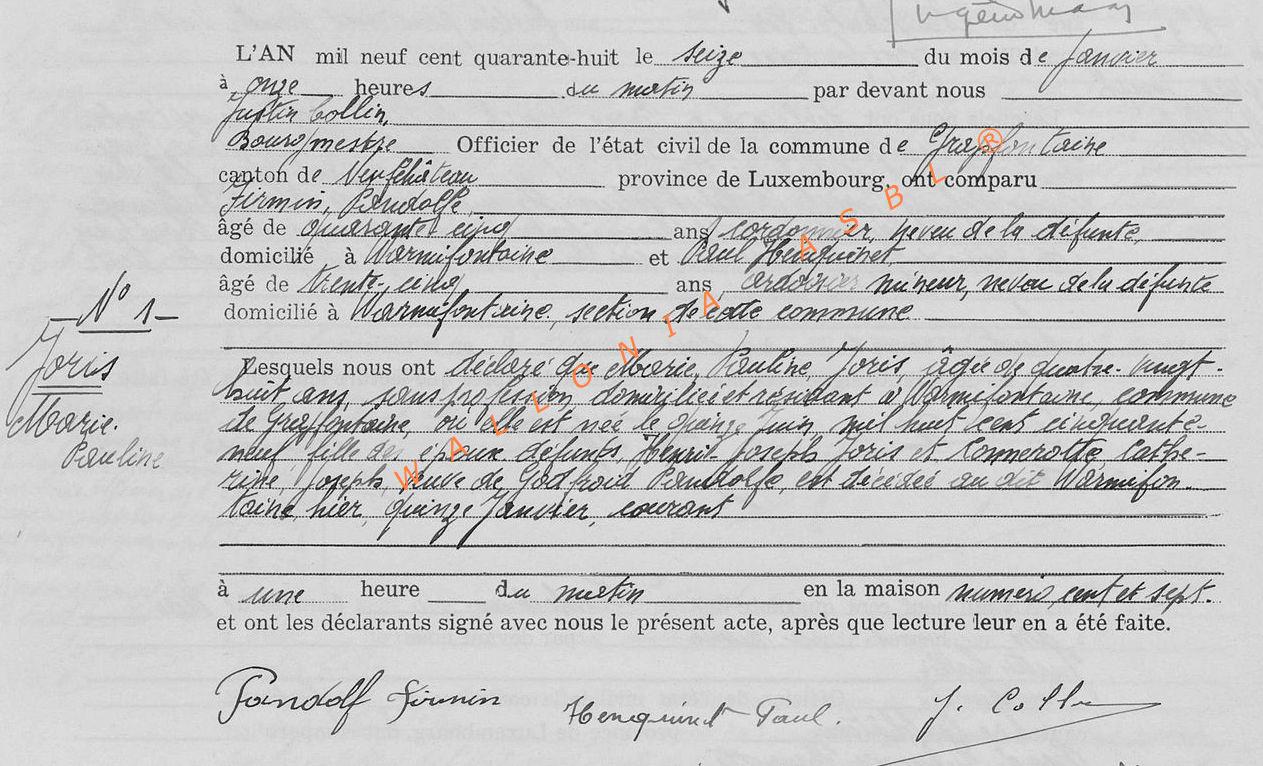 L'AN mil neuf cent quarante-huit le seize du mois de Janvier
à onze heures du matin par devant nous
Justin Collin,
Bourgmestre Officier de l'état civil de la commune de Grapfontaine
canton de Neufchâteau province de Luxembourg, ont comparu
Firmin, Pandolfe,
âgé de quarante cinq ans cordonnier, neveu de la défunte,
domicilié à Warmifontaine et Paul Henquinet
âgé de trente-cinq ans, ardoisier mineur, neveu de la défunte
domicilié à Warmifontaine, section de cette commune
N° 1
Joris
Marie.
Pauline
Lesquels nous ont déclaré que Marie, Pauline, Joris, âgée de quatre-vingt-
huit ans, sans profession, domiciliée et résidant à Warmifontaine, commune
de Grapfontaine, où elle est née le quinze Juin mil huit cent cinquante-
neuf fille des époux défunts Henri-Joseph Joris et Connerotte Cathe-
rine, Joseph, veuve de Godfroid Pandolfe, est décédée au dit Warmifon-
taine, hier, quinze Janvier, courant
à une heure du matin en la maison numéro cent et sept.
et ont les déclarants signé avec nous le présent acte, après que lecture leur en a été faite.
Pandolf Firmin Henquinet Paul. J. Collin
WALLONIA ASBL ®